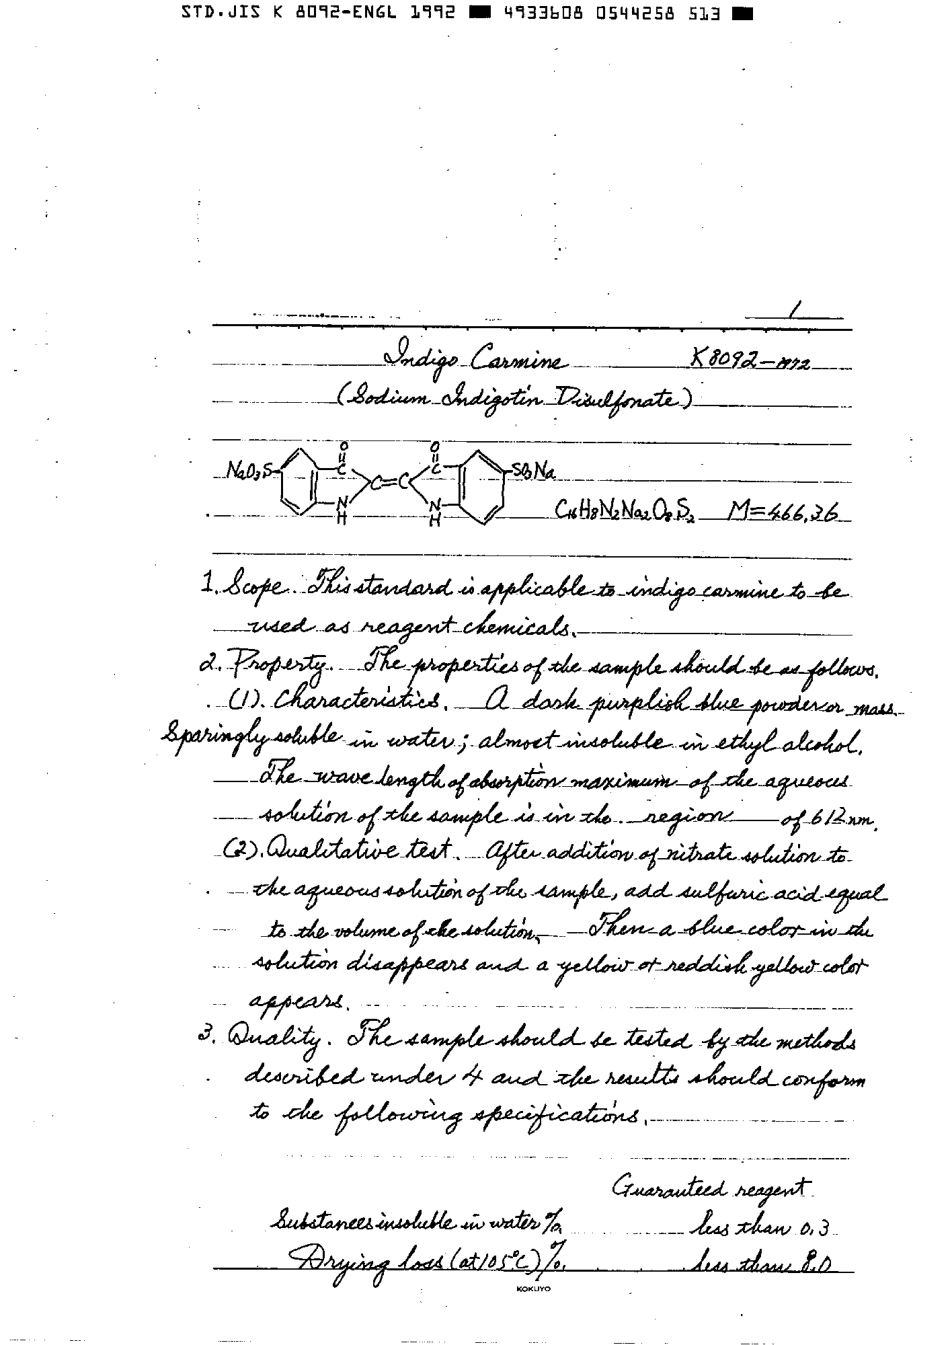 STD.JIS K 8092-ENGL 1992 ■ 4933608 0544258 513 ■
1
Indigo Carmine K8092-1972
(Sodium Indigotin Disulfonate)
O O
NaO3S C C=C C SO3Na
N N
H H
C16H8N2Na2O8S2 M=466,36
1. Scope. This standard is applicable to indigo carmine to be
used as reagent chemicals.
2. Property. The properties of the sample should be as follows.
(1). Characteristics. A dark purplish blue powder or mass.
Sparingly soluble in water; almost insoluble in ethyl alcohol.
The wave length of absorption maximum of the aqueous
solution of the sample is in the region of 612 nm.
(2). Qualitative test. After addition of nitrate solution to
the aqueous solution of the sample, add sulfuric acid equal
to the volume of the solution. Then a blue color in the
solution disappears and a yellow or reddish yellow color
appears.
3. Quality. The sample should be tested by the methods
described under 4 and the results should conform
to the following specifications.
Guaranteed reagent
Substances insoluble in water % less than 0.3
Drying loss (at 105°C) %. less than 8.0
KOKUYO